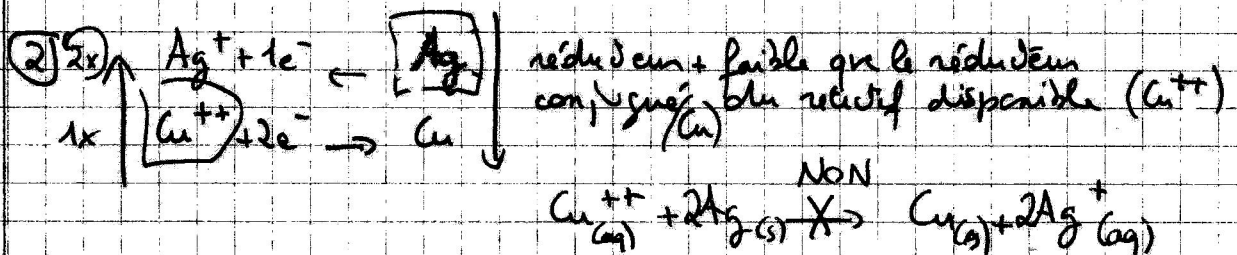 ② 2x Ag⁺ + 1e⁻ ← Ag réducteur + faible que le réducteur
conjugué du réactif disponible (Cu⁺⁺)
1x Cu⁺⁺ + 2e⁻ → Cu (Cu)
NON
Cu⁺⁺(aq) + 2Ag(s) → Cu(s) + 2Ag⁺(aq)